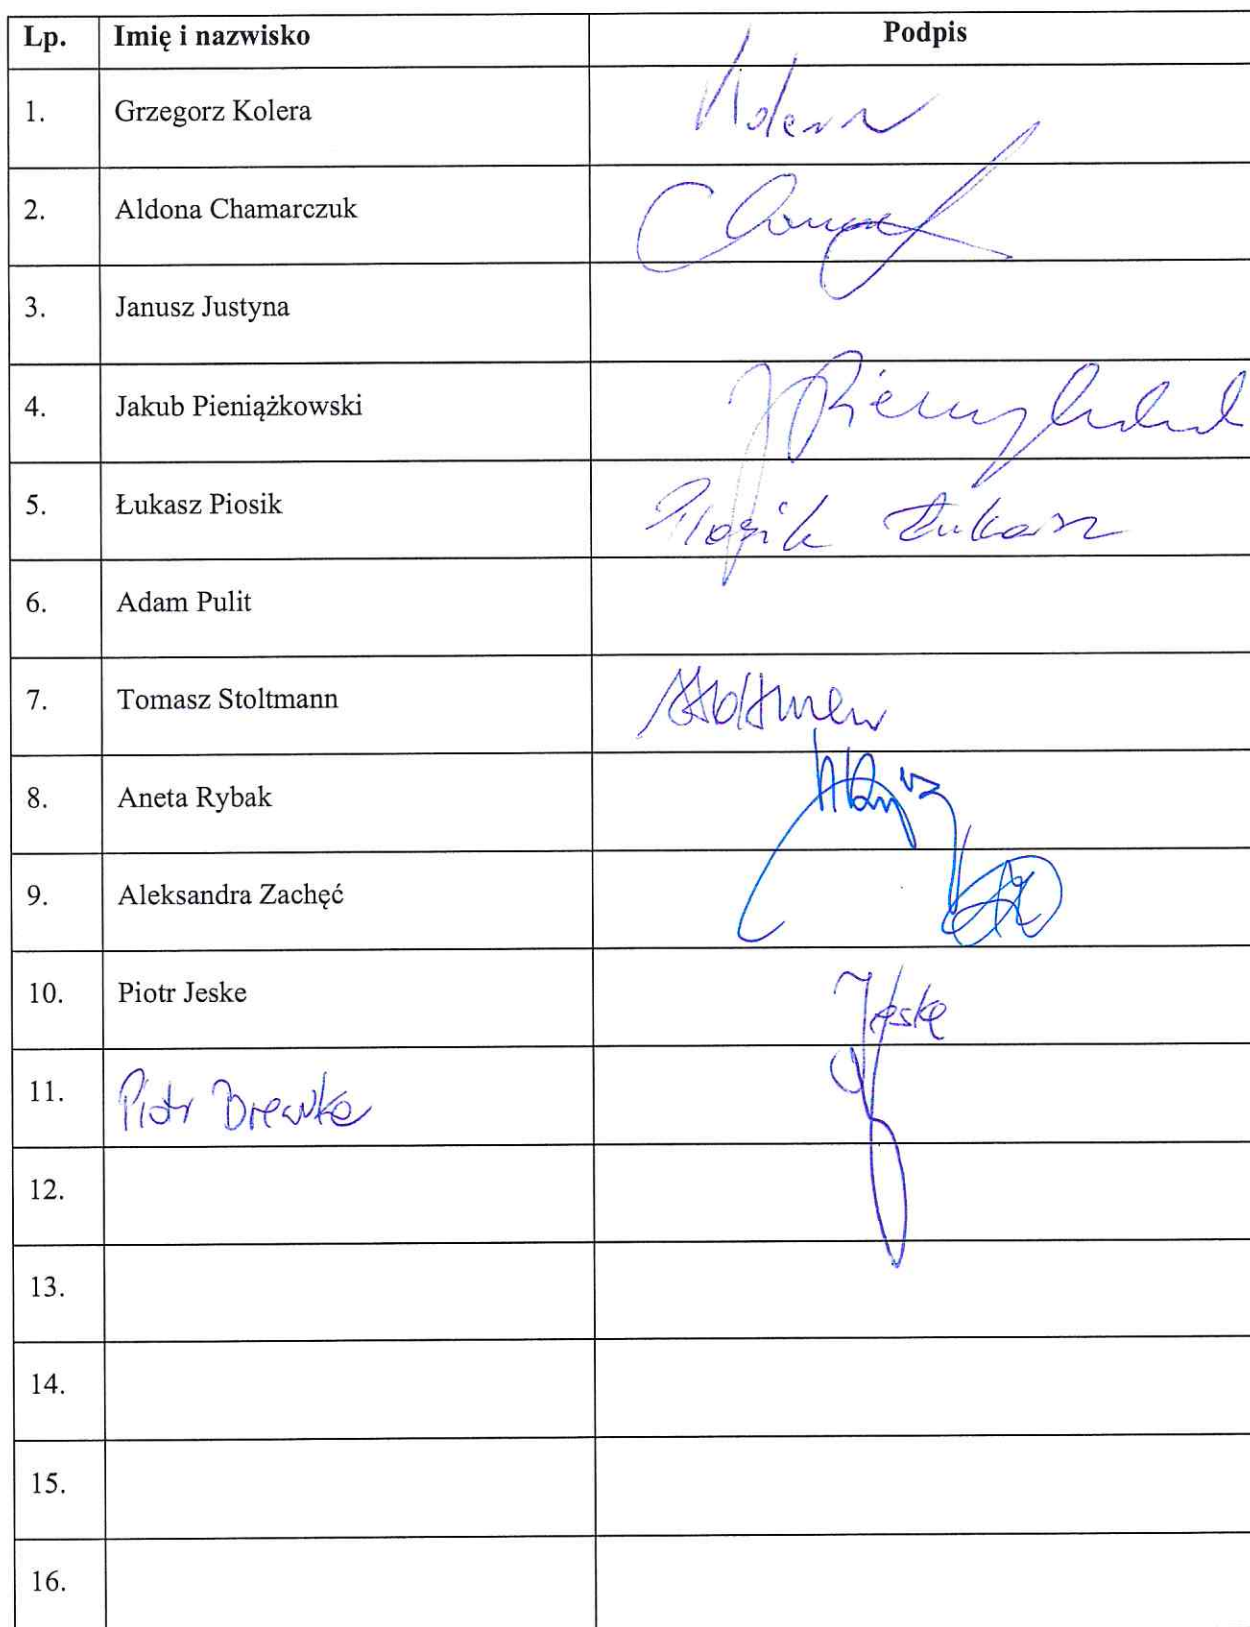 Lp. Imię i nazwisko Podpis
1. Grzegorz Kolera Kolera
2. Aldona Chamarczuk
3. Janusz Justyna
4. Jakub Pieniążkowski
5. Łukasz Piosik Piosik Łukasz
6. Adam Pulit
7. Tomasz Stoltmann
8. Aneta Rybak
9. Aleksandra Zachęć
10. Piotr Jeske Jeske
11. Piotr Brewka
12.
13.
14.
15.
16.